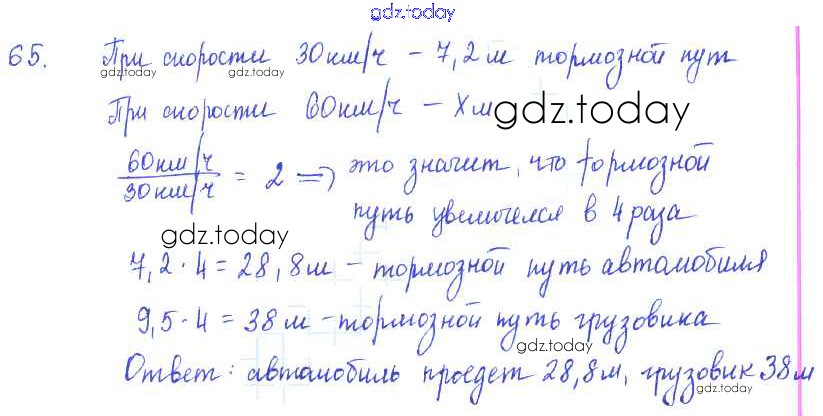 gdz.today
65. При скорости 30км/ч – 7,2м тормозной путь
gdz.today gdz.today gdz.today
При скорости 60км/ч – Xм
gdz.today
60км/ч / 30км/ч = 2 => это значит, что тормозной
путь увеличелся в 4 раза
gdz.today
7,2 · 4 = 28,8м – тормозной путь автомобиля
9,5 · 4 = 38м – тормозной путь грузовика
gdz.today
Ответ: автомобиль проедет 28,8м, грузовик 38м
gdz.today